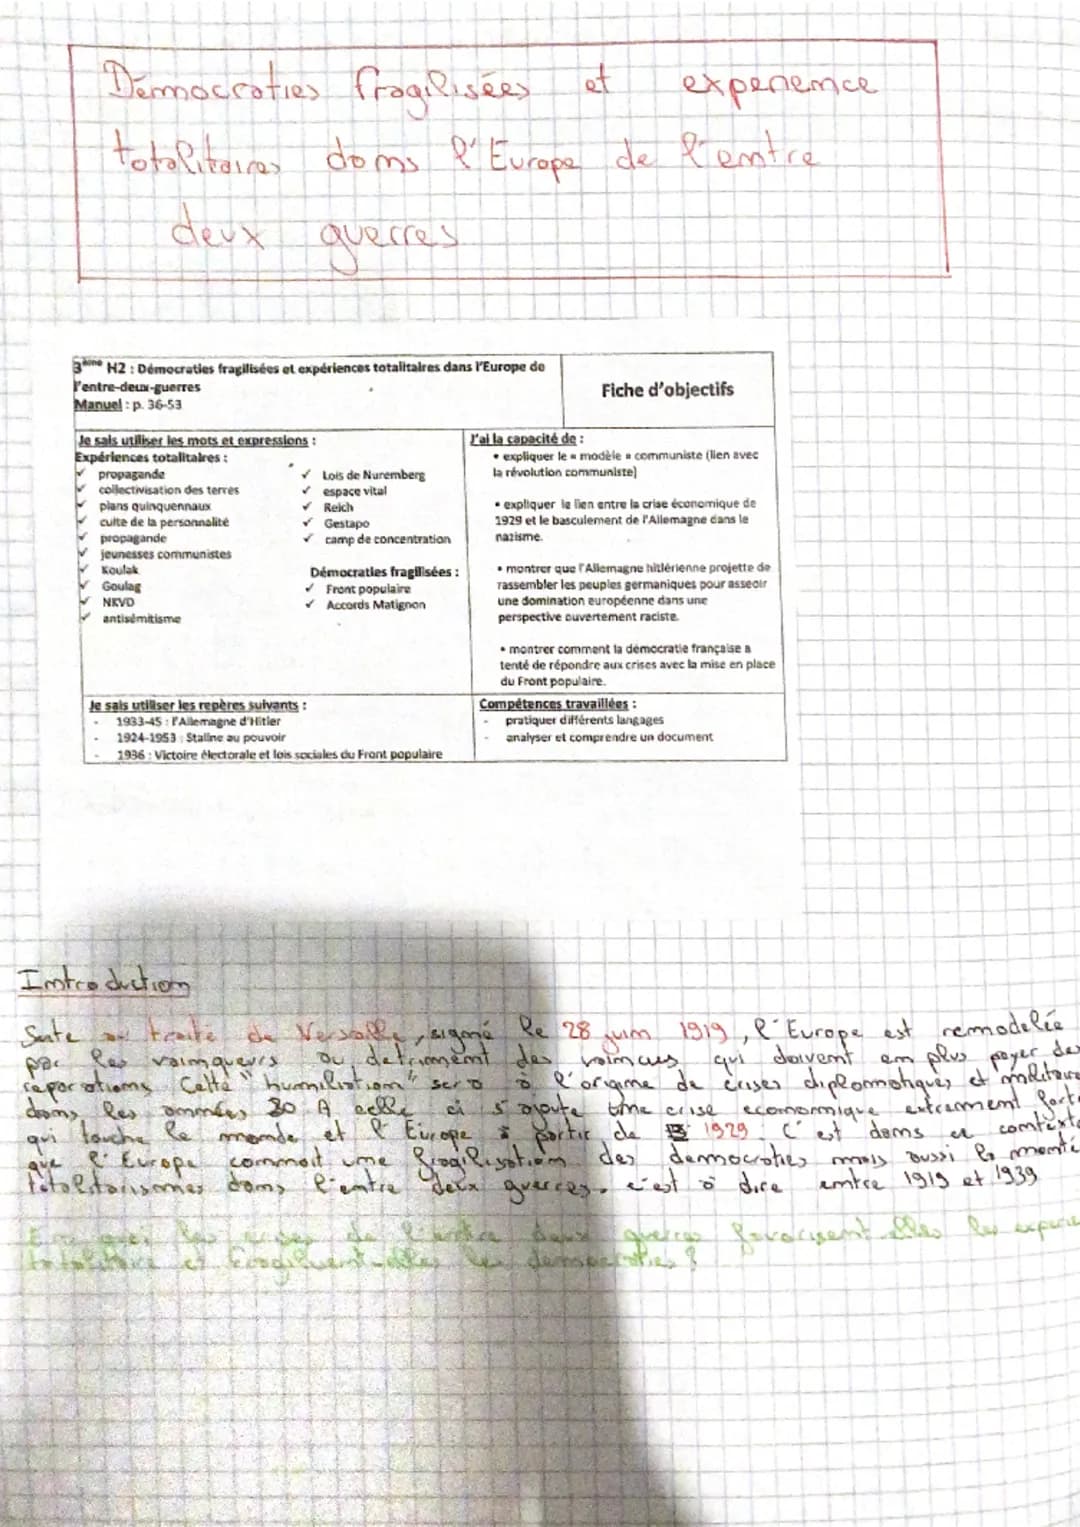 Démocraties fragilisées et experience
totalitaires dans l'Europe de l'entre
deux guerres
3ème H2 : Démocraties fragilisées et expériences totalitaires dans l'Europe de
l'entre-deux-guerres
Manuel : p. 36-53
Fiche d'objectifs
Je sais utiliser les mots et expressions :
Expériences totalitaires :
✓ propagande
✓ collectivisation des terres
✓ plans quinquennaux
✓ culte de la personnalité
✓ propagande
✓ jeunesses communistes
✓ Koulak
✓ Goulag
✓ NKVD
✓ antisémitisme
✓ Lois de Nuremberg
✓ espace vital
✓ Reich
✓ Gestapo
✓ camp de concentration
Démocraties fragilisées :
✓ Front populaire
✓ Accords Matignon
J'ai la capacité de :
• expliquer le « modèle » communiste (lien avec
la révolution communiste)
• expliquer le lien entre la crise économique de
1929 et le basculement de l'Allemagne dans le
nazisme.
• montrer que l'Allemagne hitlérienne projette de
rassembler les peuples germaniques pour asseoir
une domination européenne dans une
perspective ouvertement raciste.
• montrer comment la démocratie française a
tenté de répondre aux crises avec la mise en place
du Front populaire.
Je sais utiliser les repères suivants :
- 1933-45 : l'Allemagne d'Hitler
- 1924-1953 : Staline au pouvoir
- 1936 : Victoire électorale et lois sociales du Front populaire
Compétences travaillées :
- pratiquer différents langages
- analyser et comprendre un document
Introduction
Suite au traité de Versaille, signé le 28 juin 1919, l'Europe est remodelée
par les vainqueurs au detriment des vaincus qui doivent en plus payer des
reparations. Cette "humiliation" sera à l'origine de crises diplomatiques et militaire
dans les années 30 A celle ci s'ajoute une crise economique extrement forte
qui touche le monde et l'Europe à partir de 1929. C'est dans ce contexte
que l'Europe connait une fragilisation des democraties mais aussi la monté
totalitarismes dans l'entre deux guerres, c'est à dire entre 1919 et 1939
En quoi les crises de l'entre deux guerres favorisent-elles les experie
totalitaire et fragilisent-elles les democraties ?